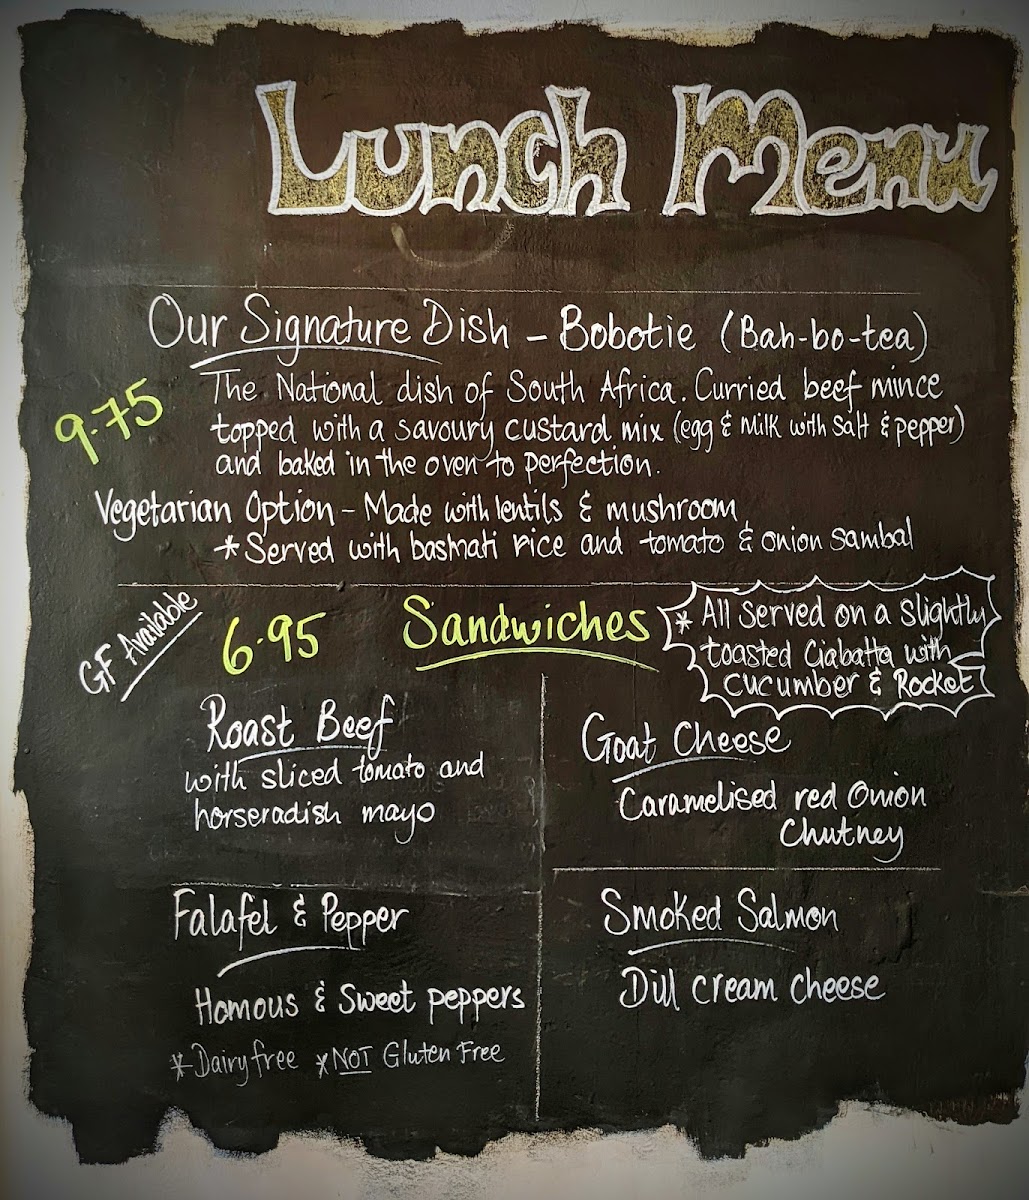 Lunch Menu
Our Signature Dish - Bobotie (Bah-bo-tea)
9.75
The National dish of South Africa. Curried beef mince
topped with a savoury custard mix (egg & Milk with salt & pepper)
and baked in the oven to perfection.
Vegetarian Option - Made with lentils & mushroom
*Served with basmati rice and tomato & onion sambal
GF Available
6.95
Sandwiches
* All served on a slightly
toasted Ciabatta with
cucumber & Rocket
Roast Beef
with sliced tomato and
horseradish mayo
Goat Cheese
Caramelised red Onion
Chutney
Falafel & Pepper
Homous & Sweet peppers
*Dairy free *NOT Gluten Free
Smoked Salmon
Dill cream cheese